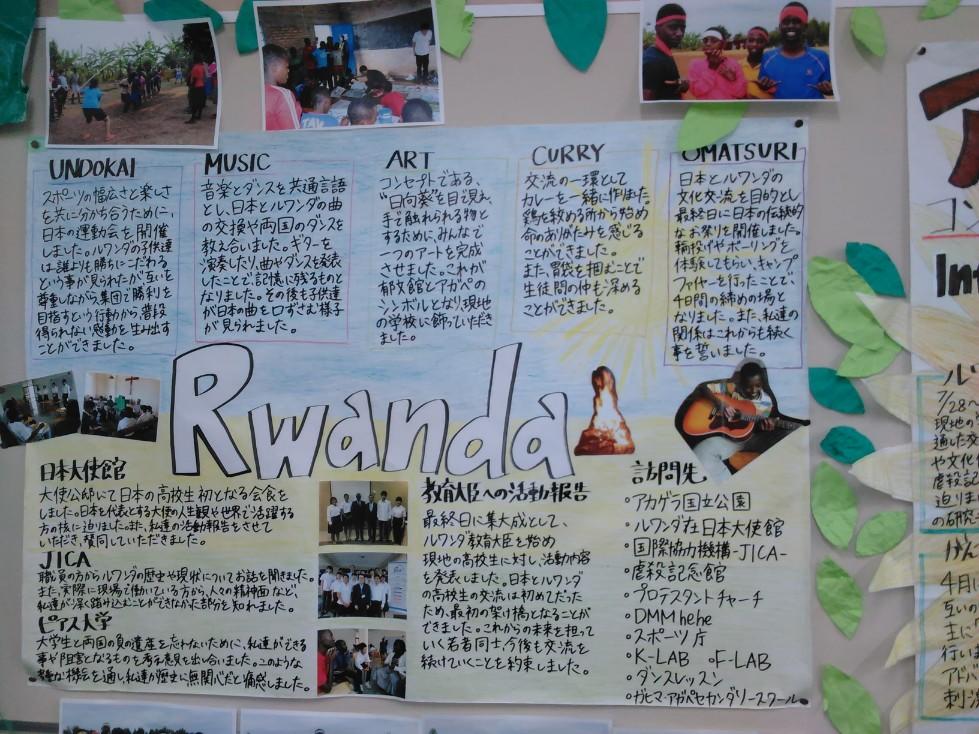 UNDOKAI
スポーツの幅広さと楽しさ
を共に分かち合うために、
日本の運動会を開催
しました。ルワンダの子供達
は誰よりも勝ちにこだわる
という事が見られたが、互いを
尊重しながら集団で勝利を
目指すという行動から、普段
得られない感動を生み出す
ことができました。
MUSIC
音楽とダンスを共通言語
とし、日本とルワンダの曲
の交換や両国のダンスを
教え合いました。ギターを
演奏したり、曲やダンスを発表
したことで、記憶に残るものと
なりました。その後も子供達
が日本の曲を口ずさむ様子
が見られました。
ART
コンセプトである、
"日向葵"を目で見れ、
手で触れられる物と
するために、みんなで
一つのアートを完成
させました。これが
郁文館とアガペの
シンボルとなり、現地
の学校に飾っていただき
ました。
CURRY
交流の一環として
カレーを一緒に作りました。
鶏を絞める所から始め
命のありがたみを感じる
ことができました。
また、胃袋を掴むことで
生徒間の仲も深める
ことができました。
OMATSURI
日本とルワンダの
文化交流を目的とし
最終日に日本の伝統的
なお祭りを開催しました。
輪投げやボーリングを
体験してもらい、キャンプ
ファイヤーを行ったことで、
4日間の締めの場と
なりました。また、私達の
関係はこれからも続く
事を誓いました。
Rwanda
日本大使館
大使公邸にて日本の高校生初となる会食を
しました。日本を代表とする大使の人生観や世界で活躍する
方の核に迫りました。また、私達の活動報告をさせて
いただき、賛同していただきました。
JICA
職員の方からルワンダの歴史や現状についてお話を聞きました。
また、実際に現場で働いている方から、人々の精神面など、
私達が深く踏み込むことができなかった部分を知れました。
ピアス大学
大学生と両国の負の遺産を忘れないために、私達ができる
事や阻害となるものを考え意見を出し合いました。このような
機会を通し、私達が歴史に無関心だと痛感しました。
教育大臣への活動報告
最終日に集大成として、
ルワンダ教育大臣を始め
現地の高校生に対し、活動内容
を発表しました。日本とルワンダ
の高校生の交流は初めてだった
ため、最初の架け橋となることが
できました。これからの未来を担って
いく若者同士、今後も交流を
続けていくことを約束しました。
訪問先
・アカゲラ国立公園
・ルワンダ在日本大使館
・国際協力機構-JICA-
・虐殺記念館
・プロテスタントチャーチ
・DMM hehe
・スポーツ庁
・K-LAB ・F-LAB
・ダンスレッスン
・ガヒマ・アガペセカンダリースクール
コン
In
ル
7/28
現地の
通した
や文化
虐殺記
迫りま
の研究
4月
互いの
主に
行いま
アドバ
刺激